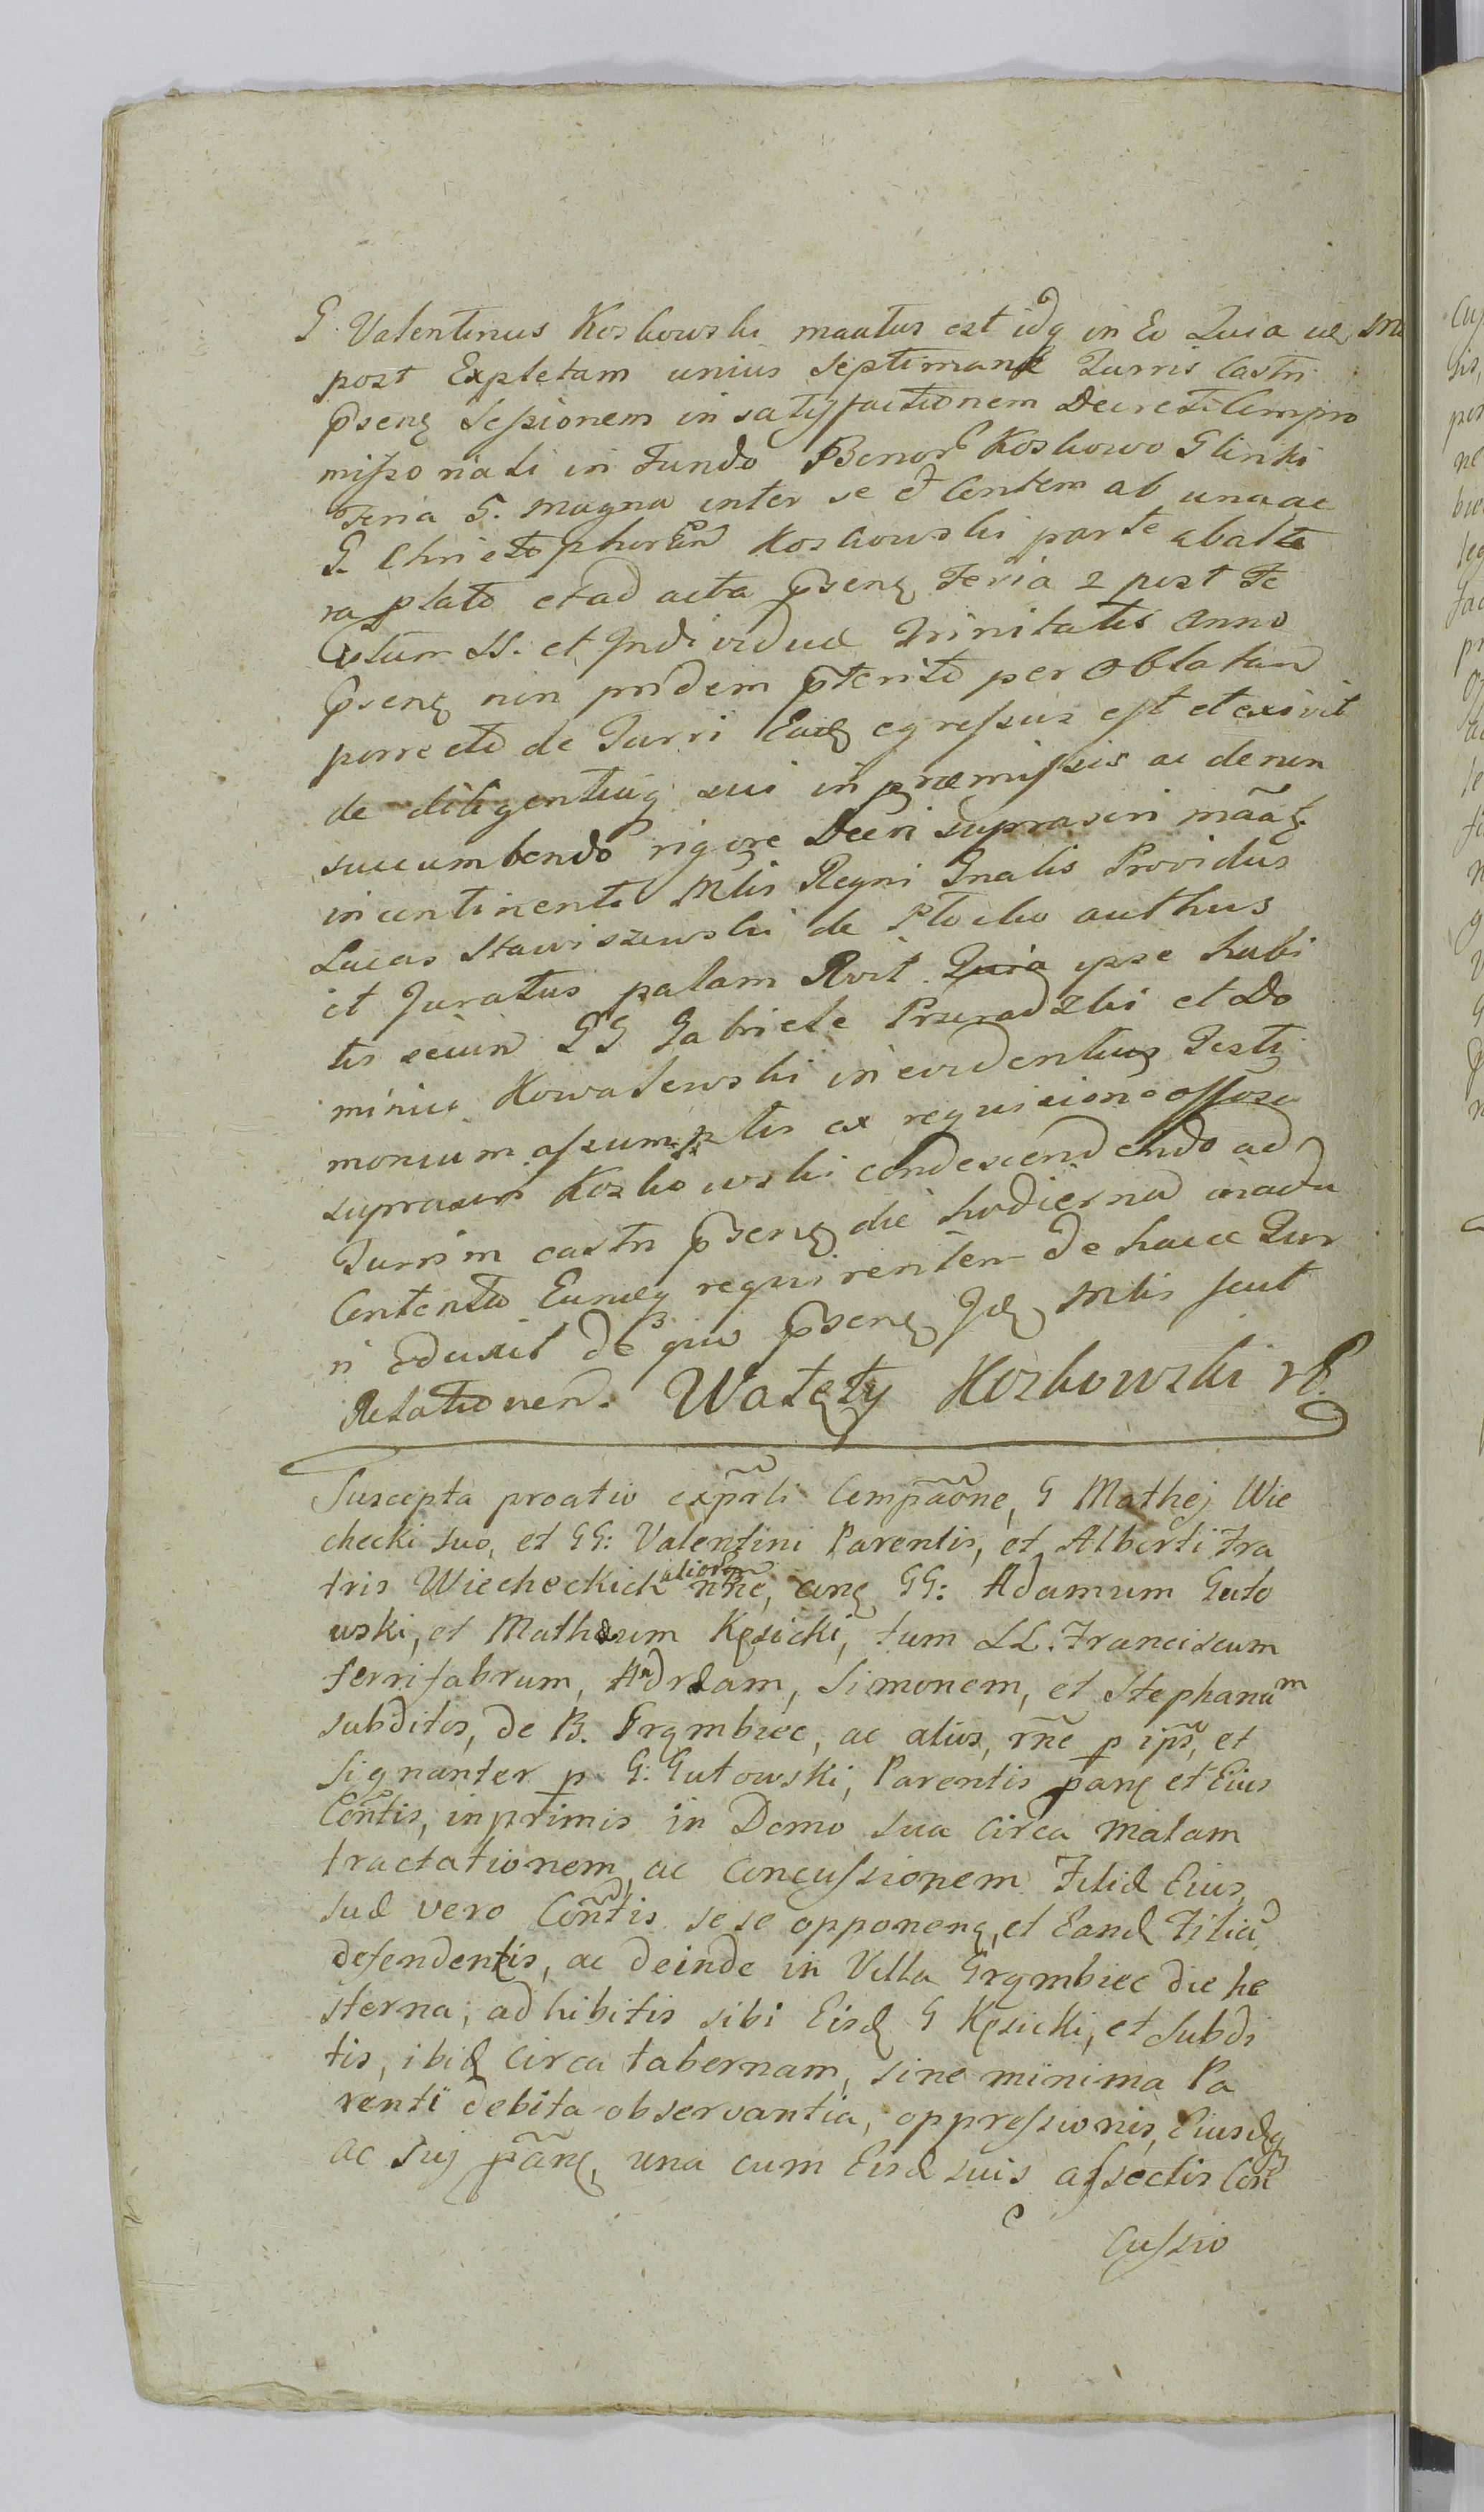 G. Valentinus Koskowski mactus est idq in Eo Quia
post Expletam unius Septimanæ Turris Castri
p̃senʒ Seſsionem in satisfactionem Decreti Compro
miſsoriali in Fundo Bonorũ Koskowo Glinki
Feria 5. magna inter se et Contem ab una ac
G. Christophorum Koskowski parte ab alte
ra plato et ad acta p̃senʒ Feria 2 post Fe
stum SS. et Individuæ Trinitatis anno
p̃senʒ non pridem p̃terito per Oblatam
porrecto de Turri egreſsus eſt et exivit
de diligentiis sui in præmiſsis ac de non
succumbendo rigore Decri suprascri
in continenti Mlis Regni Gnalis Providus
Lucas Stawiszewski de Plocko authus
et Juratus palam Rvit Quia ipse habi
tis secum GG Gabriele Przeradzki et Do
minico Kowalewski in evidentius Testi
monium aſsumptis ex requisicione offosa
suprascri Koskowski condescendendo ad
Turrim castri p̃senʒ die hodierna
Contento Eumq requirentem de hacce Tur
ri Eduxit de quo p̃senʒ Jdʒ Mlis fecit
Relationem. Walęty Koskowski rE.
Suscepta proatio exp̃rli Comp̃aõne, G Mathej Wie
checki suo, et GG: Valentini Parentis, et Alberti Fra
tris Wiecheckich aliorũ nñe, conʒ GG: Adamum Guto
wski, et Mathæum Kęsicki, tum LL. Franciscum
ferrifabrum, Andream, Simonem, et Stephanum
subditos, de B. Grąmbiec, ac alios, rñe p ip̃s, et
Signanter p G: Gutowski, Parentis p̃anʒ et Eius
Cõntis, inprimis in Domo sua circa malam
tractationem, ac concuſsionem Filiæ Eius,
suæ vero Cõntis sese opponenʒ, et Eandʒ Filiã
defendentis, ac deinde in Villa Grąmbiec die he
sterna, adhibitis sibi Eisdʒ G Kęsicki, et Subdi
tis, ibidʒ circa tabernam, sine minima Pa
renti debita observantia, oppreſsionis, Eiusdʒq
ac Suj p̃anʒ, una cum Eisd suis aſsectis Con
cuſsio